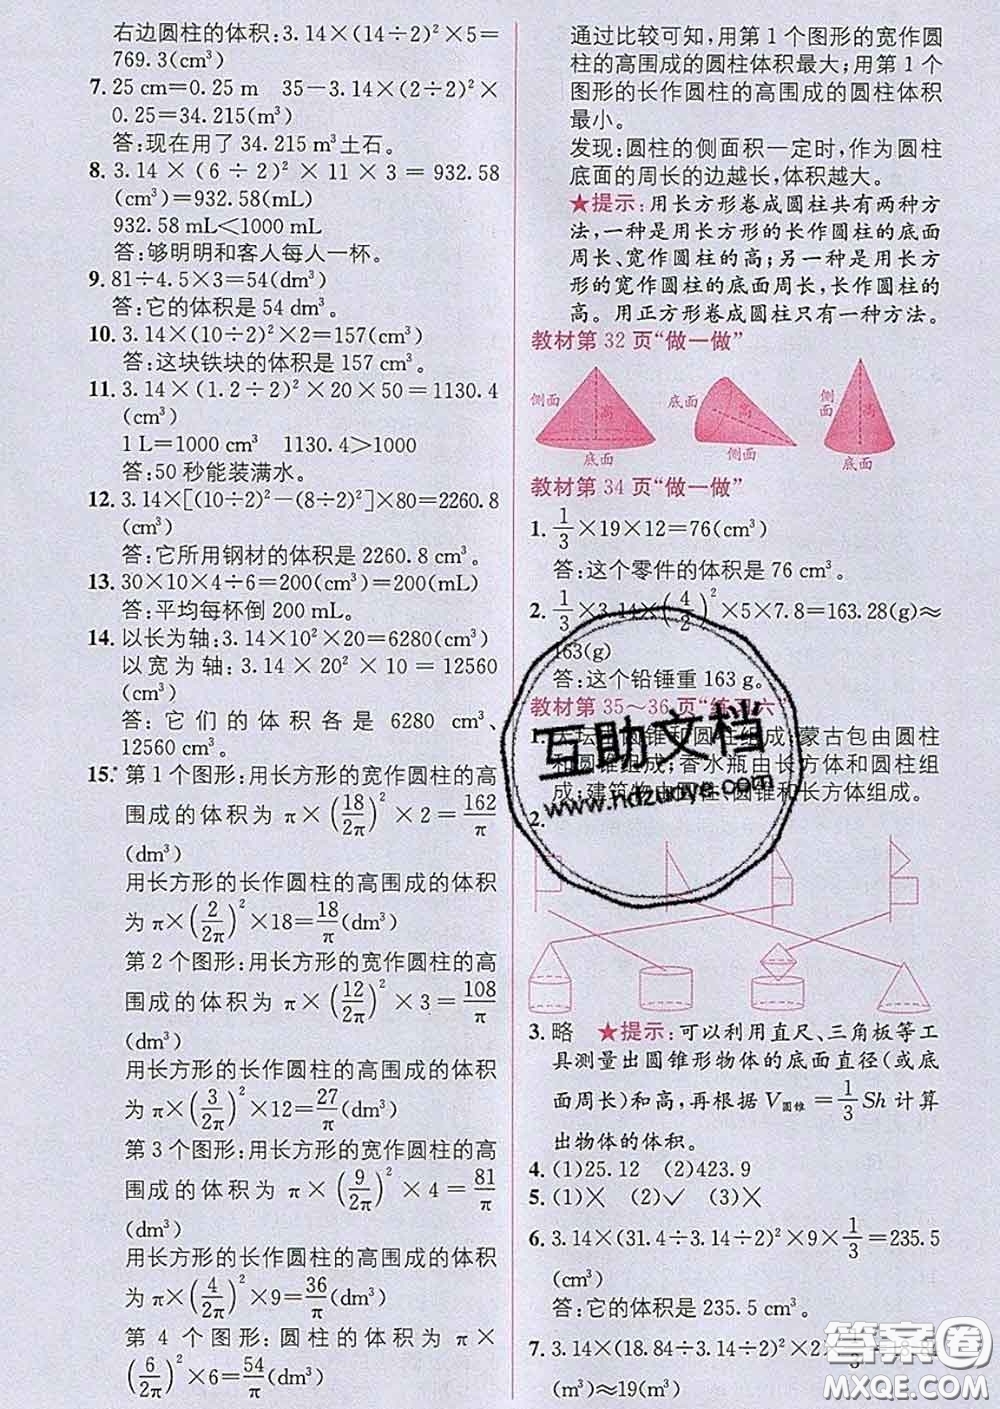 右边圆柱的体积:3.14×(14÷2)²×5=
769.3(cm³)
7. 25 cm=0.25 m 35-3.14×(2÷2)²×
0.25=34.215(m³)
答:现在用了 34.215 m³土石。
8. 3.14×(6÷2)²×11×3=932.58
(cm³)=932.58(mL)
932.58 mL<1000 mL
答:够明明和客人每人一杯。
9. 81÷4.5×3=54(dm³)
答:它的体积是 54 dm³。
10. 3.14×(10÷2)²×2=157(cm³)
答:这块铁块的体积是 157 cm³。
11. 3.14×(1.2÷2)²×20×50=1130.4
(cm³)
1 L=1000 cm³ 1130.4>1000
答:50 秒能装满水。
12. 3.14×[(10÷2)²-(8÷2)²]×80=2260.8
(cm³)
答:它所用钢材的体积是 2260.8 cm³。
13. 30×10×4÷6=200(cm³)=200(mL)
答:平均每杯倒 200 mL。
14. 以长为轴:3.14×10²×20=6280(cm³)
以宽为轴:3.14×20²×10=12560
(cm³)
答:它们的体积各是 6280 cm³、
12560 cm³。
15.* 第 1 个图形:用长方形的宽作圆柱的高
围成的体积为 π×(18/2π)²×2=162/π
(dm³)
用长方形的长作圆柱的高围成的体积
为 π×(2/2π)²×18=18/π(dm³)
第 2 个图形:用长方形的宽作圆柱的高
围成的体积为 π×(12/2π)²×3=108/π
(dm³)
用长方形的长作圆柱的高围成的体积
为 π×(3/2π)²×12=27/π(dm³)
第 3 个图形:用长方形的宽作圆柱的高
围成的体积为 π×(9/2π)²×4=81/π
(dm³)
用长方形的长作圆柱的高围成的体积
为 π×(4/2π)²×9=36/π(dm³)
第 4 个图形:圆柱的体积为 π×
(6/2π)²×6=54/π(dm³)
通过比较可知,用第 1 个图形的宽作圆
柱的高围成的圆柱体积最大;用第 1 个
图形的长作圆柱的高围成的圆柱体积
最小。
发现:圆柱的侧面积一定时,作为圆柱
底面的周长的边越长,体积越大。
★提示:用长方形卷成圆柱共有两种方
法,一种是用长方形的长作圆柱的底面
周长、宽作圆柱的高;另一种是用长方
形的宽作圆柱的底面周长,长作圆柱的
高。用正方形卷成圆柱只有一种方法。
教材第 32 页“做一做”
侧面 高 底面
底面 高 侧面
侧面 高 底面
教材第 34 页“做一做”
1. 1/3×19×12=76(cm³)
答:这个零件的体积是 76 cm³。
2. 1/3×3.14×(4/2)²×5×7.8=163.28(g)≈
163(g)
答:这个铅锤重 163 g。
教材第 35~36 页“练习六”
1. 天坛由圆锥和圆柱组成;蒙古包由圆柱
和圆锥组成;香水瓶由长方体和圆柱组
成;建筑物由圆柱、圆锥和长方体组成。
2.
3. 略 ★提示:可以利用直尺、三角板等工
具测量出圆锥形物体的底面直径(或底
面周长)和高,再根据V圆锥=1/3Sh计算
出物体的体积。
4. (1)25.12 (2)423.9
5. (1)× (2)✓ (3)×
6. 3.14×(31.4÷3.14÷2)²×9×1/3=235.5
(cm³)
答:它的体积是 235.5 cm³。
7. 3.14×(18.84÷3.14÷2)²×2
(m³)≈19(m³)
互助文档
www.hdzuoye.com
答案圈
MXQE.COM